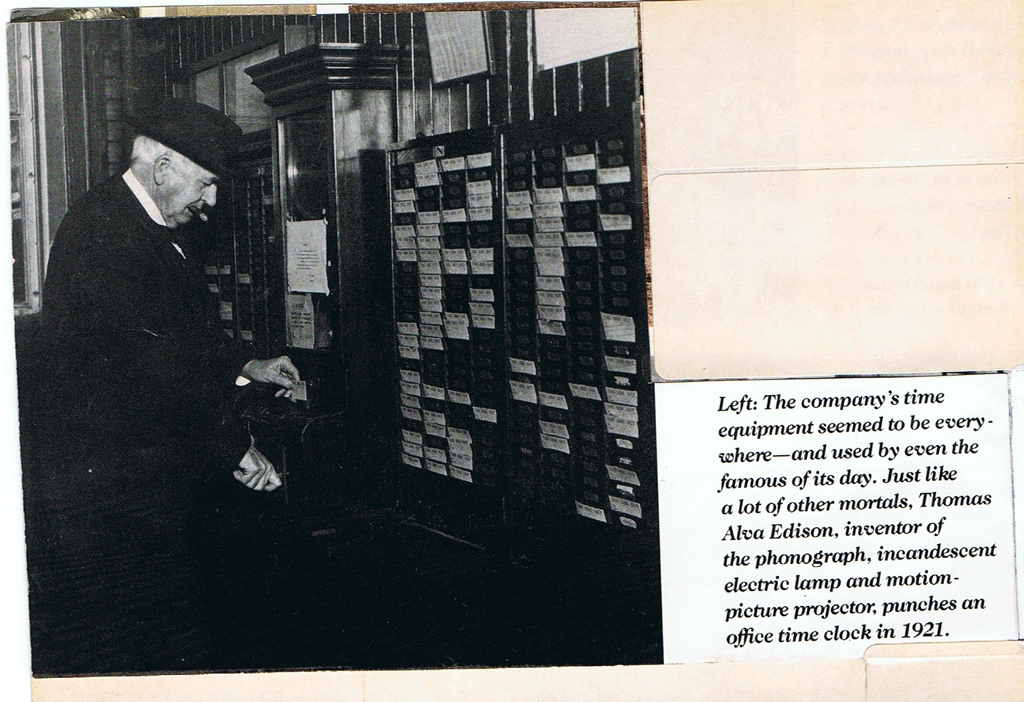 Left: The company's time
equipment seemed to be every-
where—and used by even the
famous of its day. Just like
a lot of other mortals, Thomas
Alva Edison, inventor of
the phonograph, incandescent
electric lamp and motion-
picture projector, punches an
office time clock in 1921.